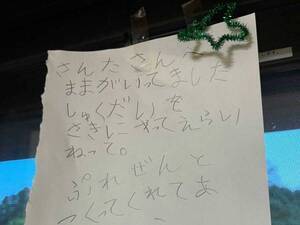 さんたさんへ
ままがいってました
しゅくだいを
さきにやってえらい
ねって。
ぷれぜんと
つくってくれてあ